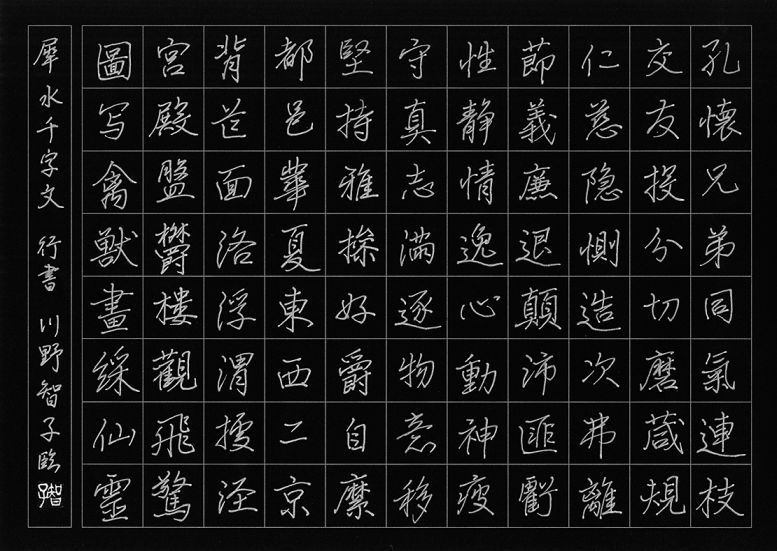 孔懐兄弟同氣連枝
交友投分切磨葴規
仁慈隠惻造次弗離
節義廉退顛沛匪虧
性静情逸心動神疲
守真志満逐物意移
堅持雅操好爵自縻
都邑華夏東西二京
背芒面洛浮渭據涇
宮殿盤欝樓觀飛驚
圖写禽獣畫綵仙靈
犀水千字文 行書 川野智子臨